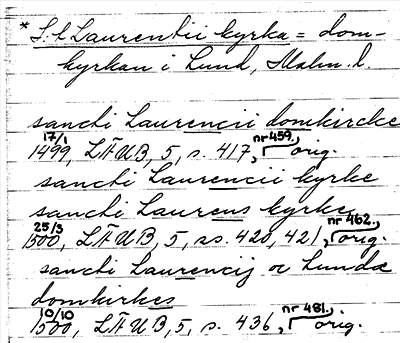 * S:t Laurentii kyrka = dom-
kyrkan i Lund, Malm. l.
sancti Laurencii domkircke
17/1 1499, LÄUB, 5, s. 417, nr 459., orig.
sancti Laurencii kyrke
sancti Laurens kyrke
25/3 1500, LÄUB, 5, ss. 420, 421, nr 462., orig.
sancti Laurencij o Lunda
domkirkes
10/10 1500, LÄUB, 5, s. 436, nr 481., orig.